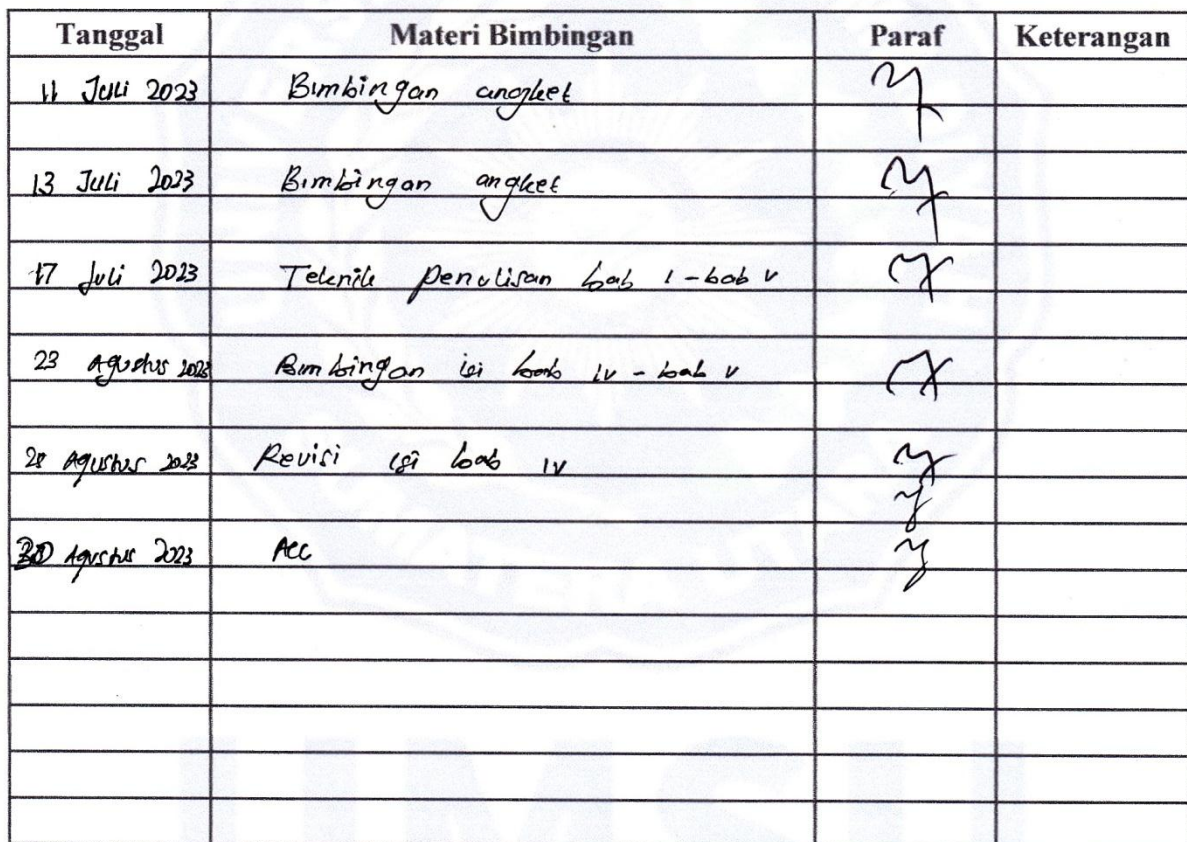 Tanggal Materi Bimbingan Paraf Keterangan
11 Juli 2023 Bimbingan angket
13 Juli 2023 Bimbingan angket
17 Juli 2023 Teknik penulisan bab I - bab V
23 Agustus 2023 Bimbingan isi bab IV - bab V
28 Agustus 2023 Revisi isi bab IV
Agustus 2023 Acc
UMSU